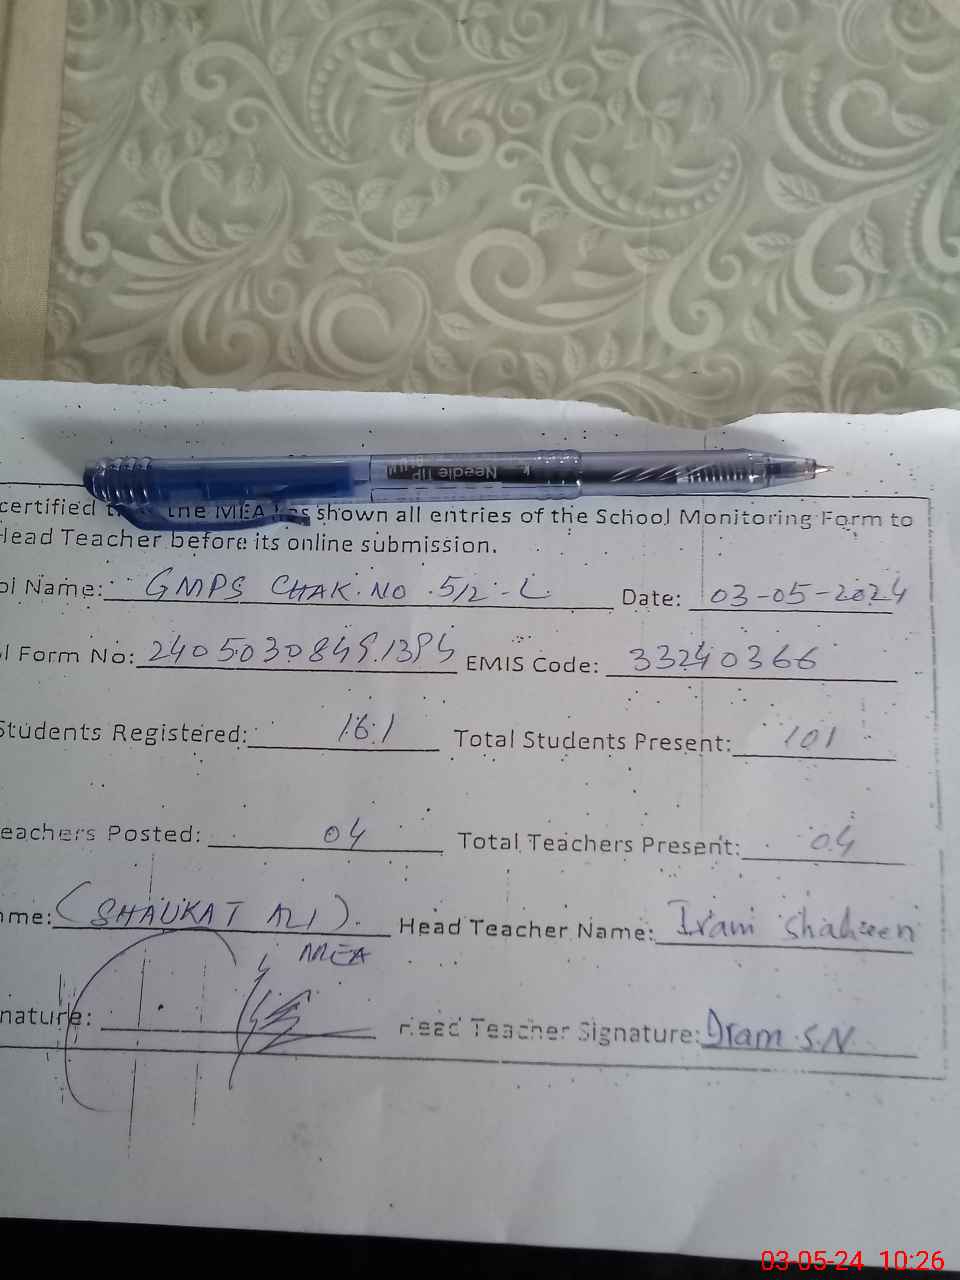 Needle TIP
certified the MEA has shown all entries of the School Monitoring Form to
Head Teacher before its online submission.
ol Name: GMPS CHAK.NO.5/2-L Date: 03-05-2024
l Form No: EMIS Code: 33240366
Students Registered: 161 Total Students Present: 101
eachers Posted: 04 Total Teachers Present: 04
me: (SHAUKAT ALI). Head Teacher Name: Iram Shaheen
MEA
nature: Head Teacher Signature: Iram S.N
03-05-24 10:26